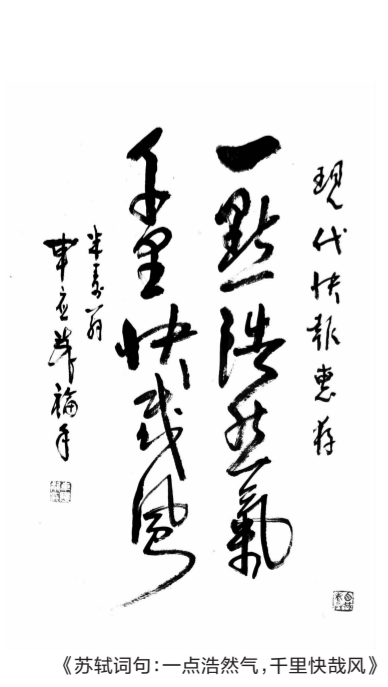 现代快报惠存
一點浩然氣
千里快哉风
米寿翁
《苏轼词句：一点浩然气，千里快哉风》